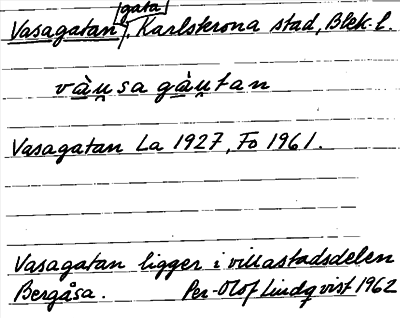 gata
Vasagatan, Karlskrona stad, Blek. l.
vàu̯sa gàu̯tan
Vasagatan La 1927, Fo 1961.
Vasagatan ligger i villastadsdelen
Bergåsa. Per-Olof Lindqvist 1962